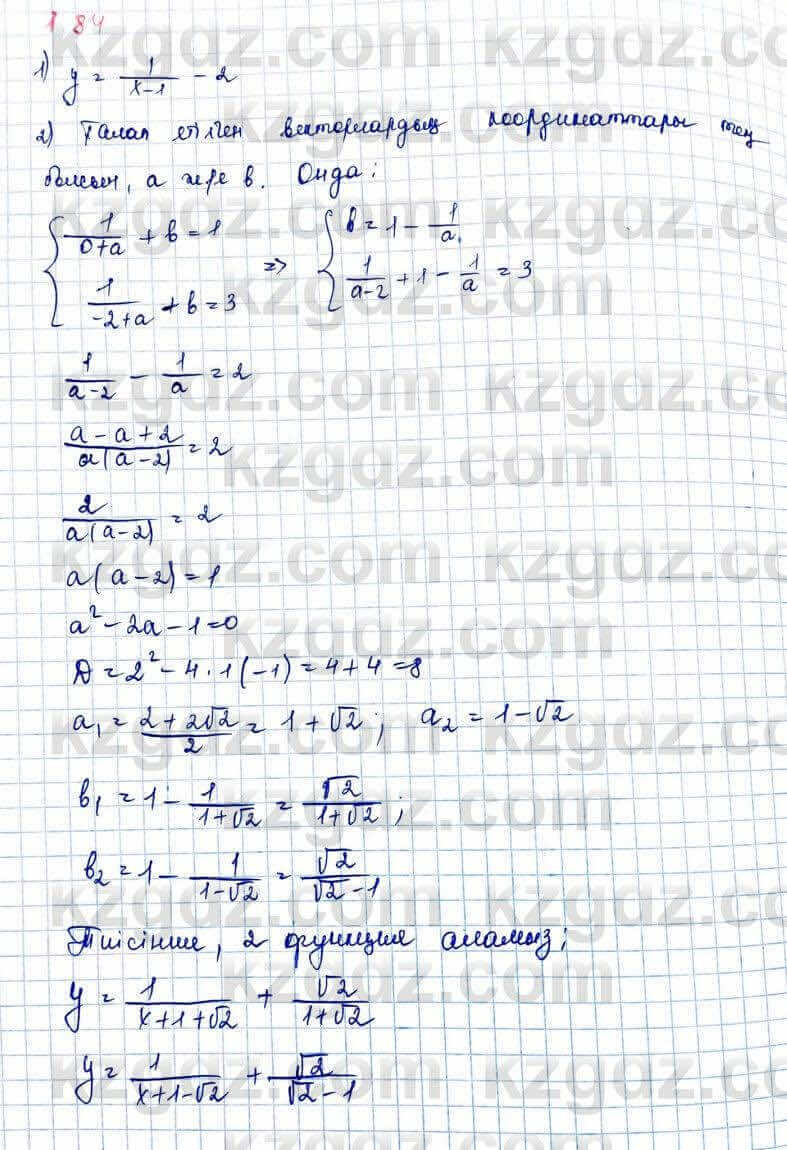 1 84
1) y = 1/(x-1) - 2
2) Талап етілген векторлардың координаттары тең
болсын, a және b. Онда:
{ 1/(0+a) + b = 1 => { b = 1 - 1/a,
1/(-2+a) + b = 3 1/(a-2) + 1 - 1/a = 3
1/(a-2) - 1/a = 2
(a-a+2)/(a(a-2)) = 2
2/(a(a-2)) = 2
a(a-2) = 1
a² - 2a - 1 = 0
D = 2² - 4·1(-1) = 4+4 = 8
a₁ = (2+2√2)/2 = 1+√2; a₂ = 1-√2
b₁ = 1 - 1/(1+√2) = √2/(1+√2);
b₂ = 1 - 1/(1-√2) = √2/(√2-1)
Тиісінше, 2 функция аламыз:
y = 1/(x+1+√2) + √2/(1+√2)
y = 1/(x+1-√2) + √2/(√2-1)
kzgdz.com